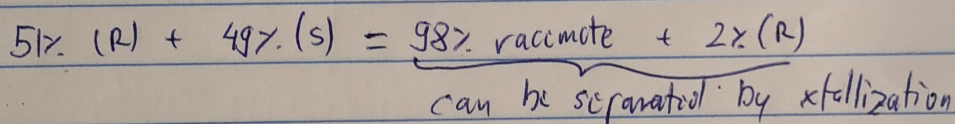 51% (R) + 49% (S) = 98% racemate + 2% (R)
can be separated by xtallization